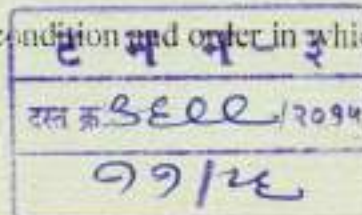 condition and order in whic
ट न न - ३
दस्त क्र /२०१५
११/२६